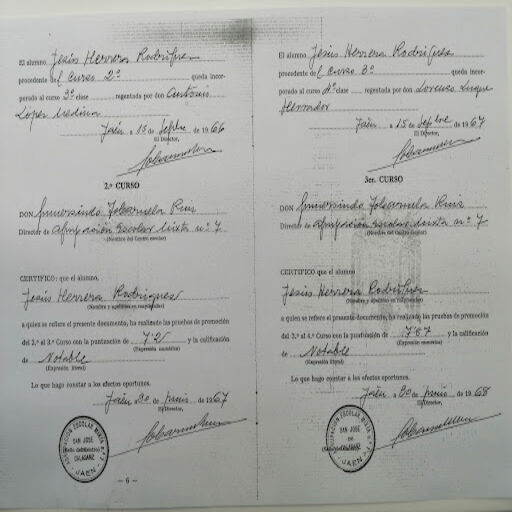 El alumno Jesús Herrera Rodríguez
procedente del Curso 2º queda incor-
porado al curso 3º clase regentada por don Antonio
López Medina
Jaén a 15 de Sepbre de 1966
El Director,
2.º CURSO
DON Gumersindo Ruiz
Director de Agrupación Escolar Mixta nº 7
(Nombre del Centro escolar)
CERTIFICO: que el alumno
Jesús Herrera Rodríguez
(Nombre y apellidos en mayúsculas)
a quien se refiere el presente documento, ha realizado las pruebas de promoción
del 2.º al 3.º Curso con la puntuación de 7'2 y la calificación
(Expresión numérica)
de Notable
(Expresión literal)
Lo que hago constar a los efectos oportunos.
Jaén 20 de junio de 1967
El Director,
AGRUPACION ESCOLAR MIXTA N.º 7
SAN JOSÉ
DE
CALASANZ
- JAEN -
— 6 —
El alumno Jesús Herrera Rodríguez
procedente del Curso 3º queda incor-
porado al curso 4º clase regentada por don Lorenzo Luque
Herrador
Jaén a 15 de Sepbre de 1967
El Director,
3er. CURSO
DON Gumersindo Ruiz
Director de Agrupación Escolar Mixta nº 7
(Nombre del Centro escolar)
CERTIFICO que el alumno
Jesús Herrera Rodríguez
(Nombre y apellidos en mayúsculas)
a quien se refiere el presente documento, ha realizado las pruebas de promoción
del 3.º al 4.º Curso con la puntuación de 7'87 y la calificación
(Expresión numérica)
de Notable
(Expresión literal)
Lo que hago constar a los efectos oportunos.
Jaén a 20 de junio de 1968
El Director,
AGRUPACION ESCOLAR MIXTA N.º 7
SAN JOSÉ
DE
CALASANZ
- JAEN -